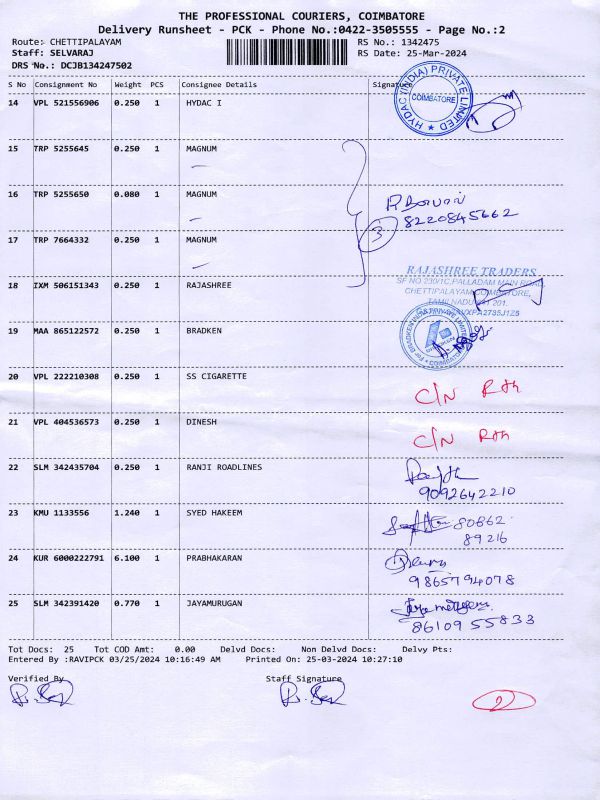 THE PROFESSIONAL COURIERS, COIMBATORE
Delivery Runsheet - PCK - Phone No.:0422-3505555 - Page No.:2
Route: CHETTIPALAYAM RS No.: 1342475
Staff: SELVARAJ RS Date: 25-Mar-2024
DRS No.: DCJB134247502
S No Consignment No Weight PCS Consignee Details Signature
14 VPL 521556906 0.250 1 HYDAC I
HYDAC (INDIA) PRIVATE LIMITED
COIMBATORE
15 TRP 5255645 0.250 1 MAGNUM
16 TRP 5255650 0.080 1 MAGNUM
8220845662
3
17 TRP 7664332 0.250 1 MAGNUM
RAJASHREE TRADERS
SF NO 230/1C, PALLADAM MAIN ROAD,
CHETTIPALAYAM, COIMBATORE,
18 IXM 506151343 0.250 1 RAJASHREE
TAMILNADU
19 MAA 865122572 0.250 1 BRADKEN
20 VPL 222210308 0.250 1 SS CIGARETTE
C/N Rth
21 VPL 404536573 0.250 1 DINESH
C/N Rth
22 SLM 342435704 0.250 1 RANJI ROADLINES
9092642210
23 KMU 1133556 1.240 1 SYED HAKEEM
80862
89216
24 KUR 6000222791 6.100 1 PRABHAKARAN
9865794078
25 SLM 342391420 0.770 1 JAYAMURUGAN
8610955833
Tot Docs: 25 Tot COD Amt: 0.00 Delvd Docs: Non Delvd Docs: Delvy Pts:
Entered By :RAVIPCK 03/25/2024 10:16:49 AM Printed On: 25-03-2024 10:27:10
Verified By Staff Signature
2